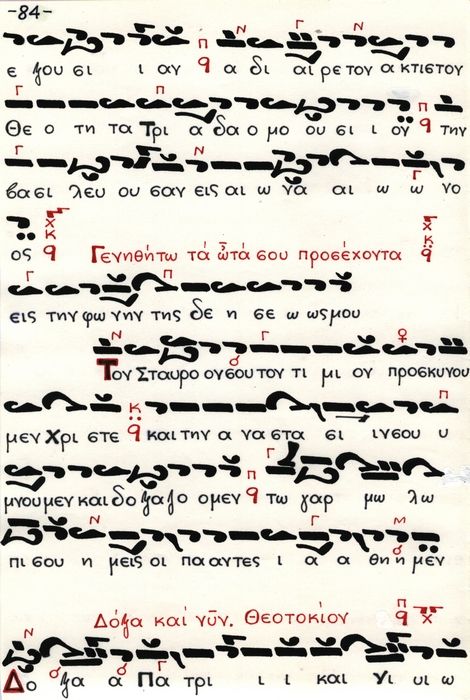 -84-
ε ξου σι ι αν α δι αι ρε τον α κτιστον
Θε ο τη τα Τρι α δα ο μο ου σι ι ον την
βασι λευ ου σαν εις αι ω να αι ω ω νο
ος Γενηθήτω τά ὦτά σου προσέχοντα
εις την φω νην της δε η σε ω ως μου
Τον Σταυρο ον σου τον τι μι ον προσκυνου
μεν Χρι στε και την α να στα σι ιν σου υ
μνου μεν και δο ξα ζο ομεν τω γαρ μω λω
πι σου η μεις οι πα αντες ι α α θη η μεν
Δόξα καί νῦν. Θεοτοκίον
Δο ξα α Πα τρι ι και Υι υι ω